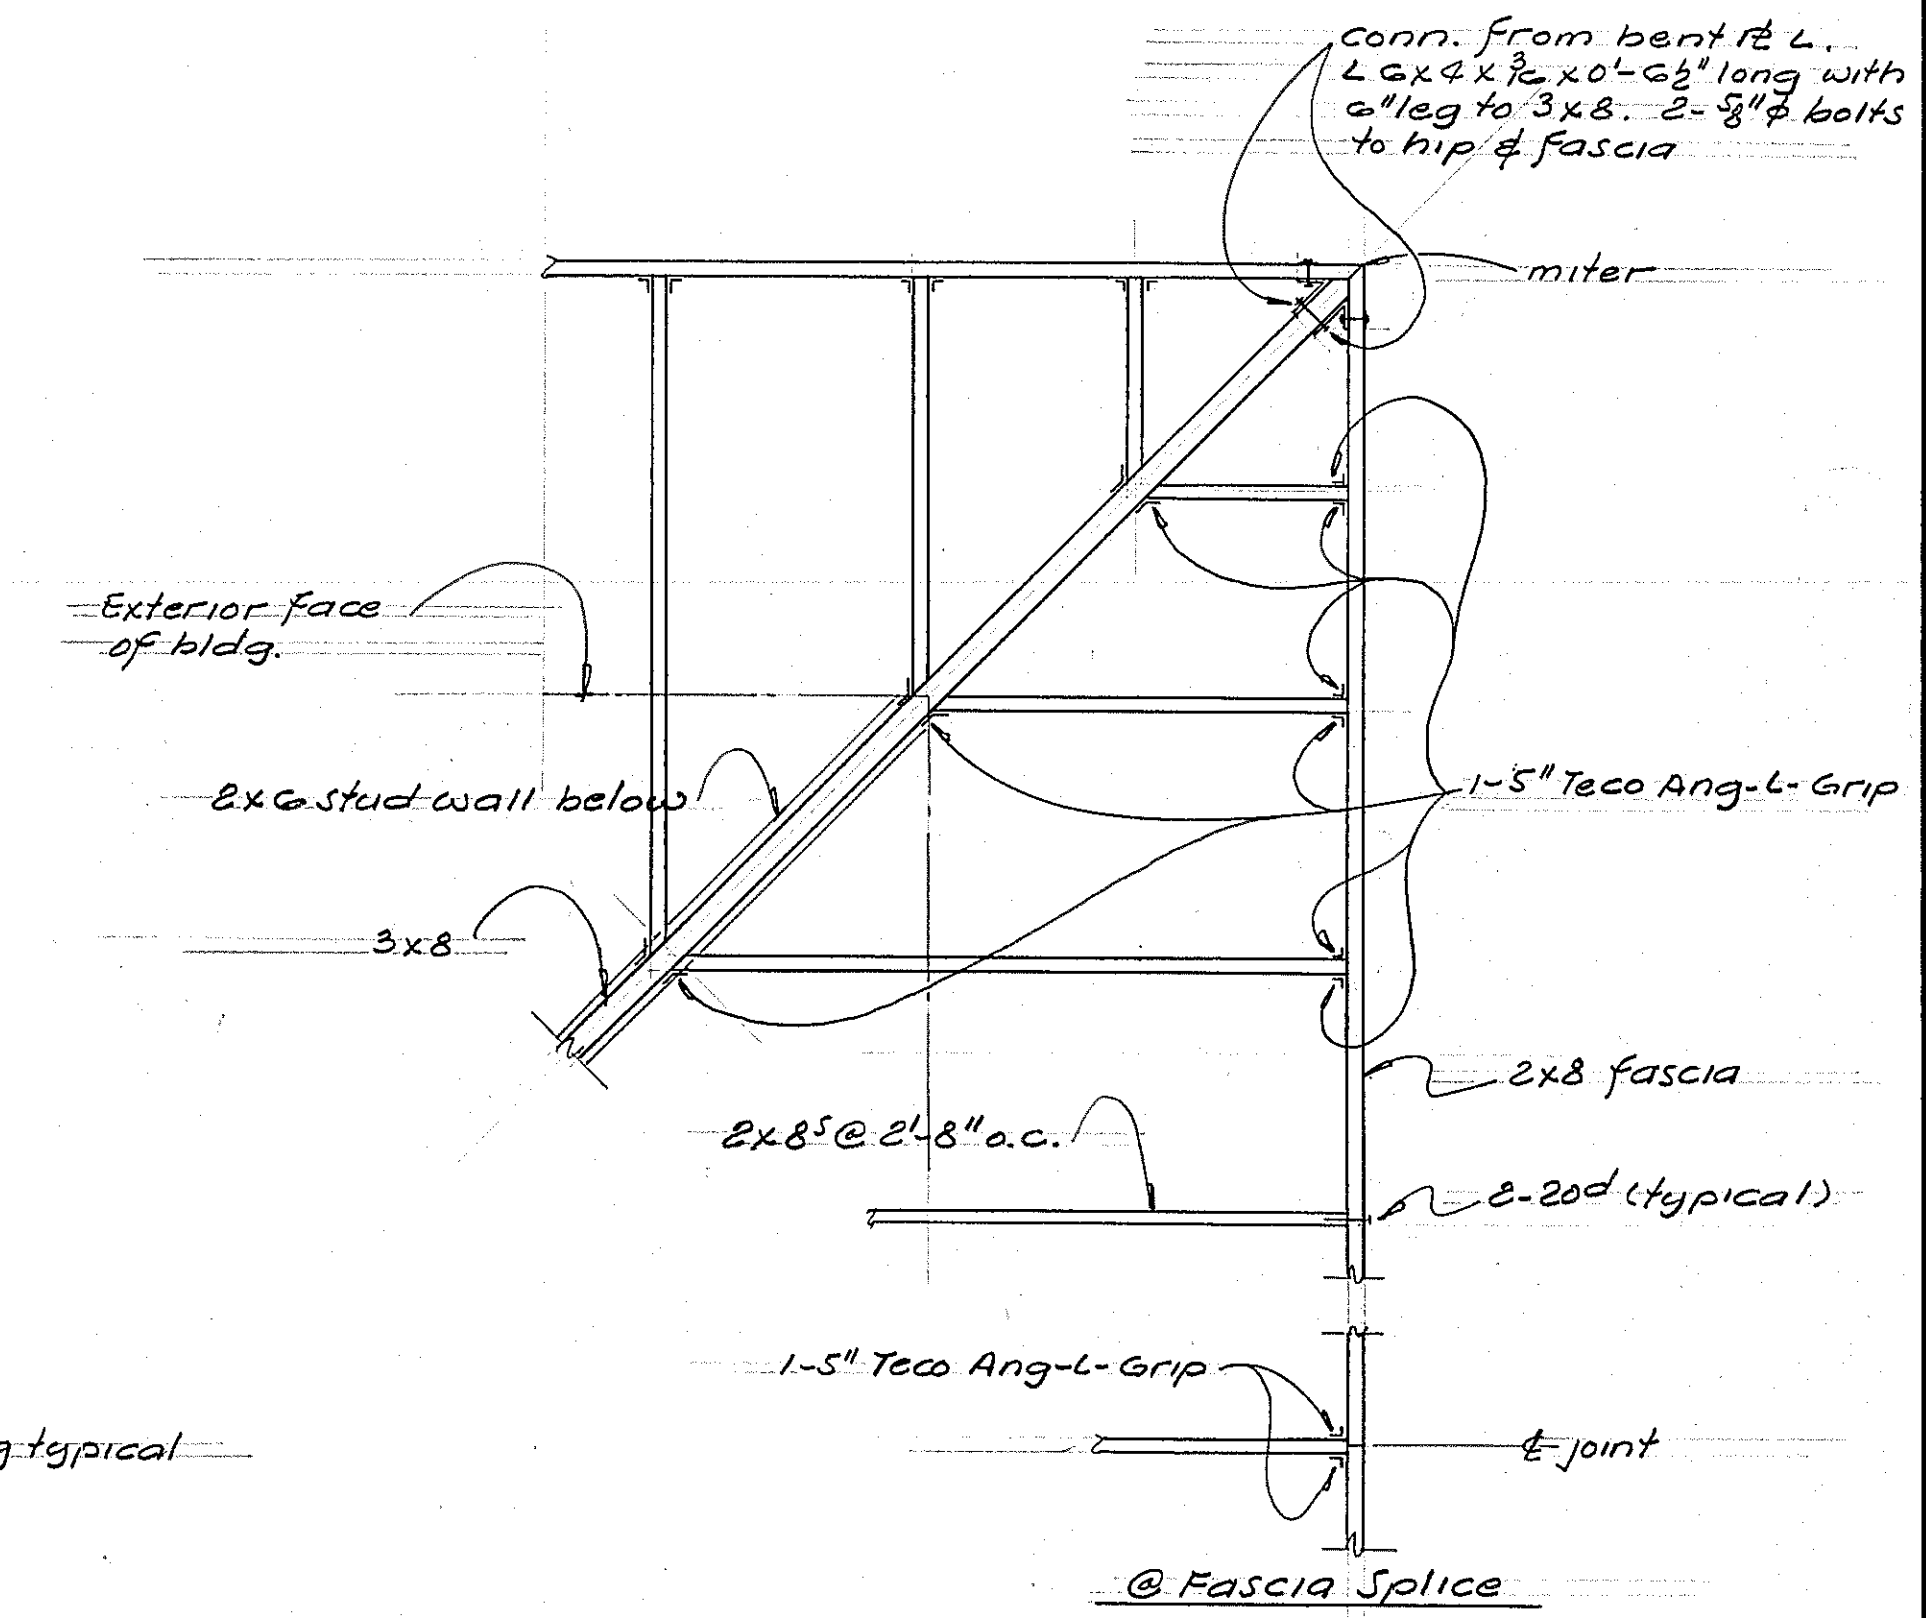 conn. from bent ⅊ L.
L 6x4 x 3/16 x 0'-6½" long with
6" leg to 3x8. 2-⅝"φ bolts
to hip & fascia
miter
Exterior face
of bldg.
2x6 stud wall below
1-5" Teco Ang-L-Grip
3x8
2x8 fascia
2x8s @ 2'-8" o.c.
2-20d (typical)
1-5" Teco Ang-L-Grip
typical
℄ joint
@ Fascia Splice